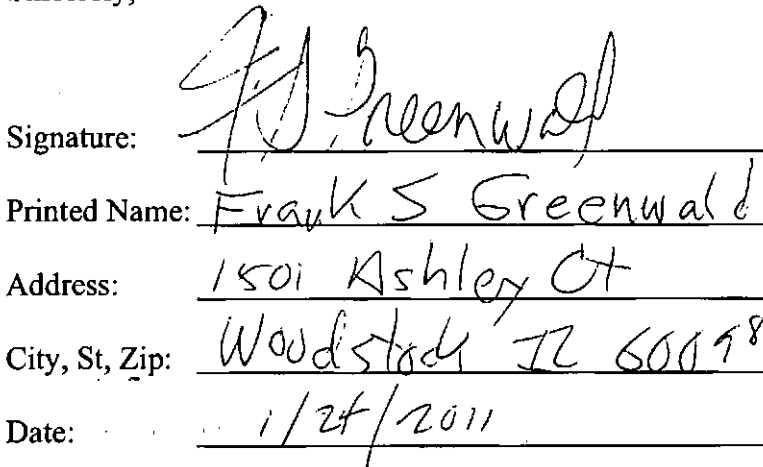 Sincerely,
Signature: F S Greenwald
Printed Name: Frank S Greenwald
Address: 1501 Ashley Ct
City, St, Zip: Woodstock IL 60098
Date: 1/24/2011